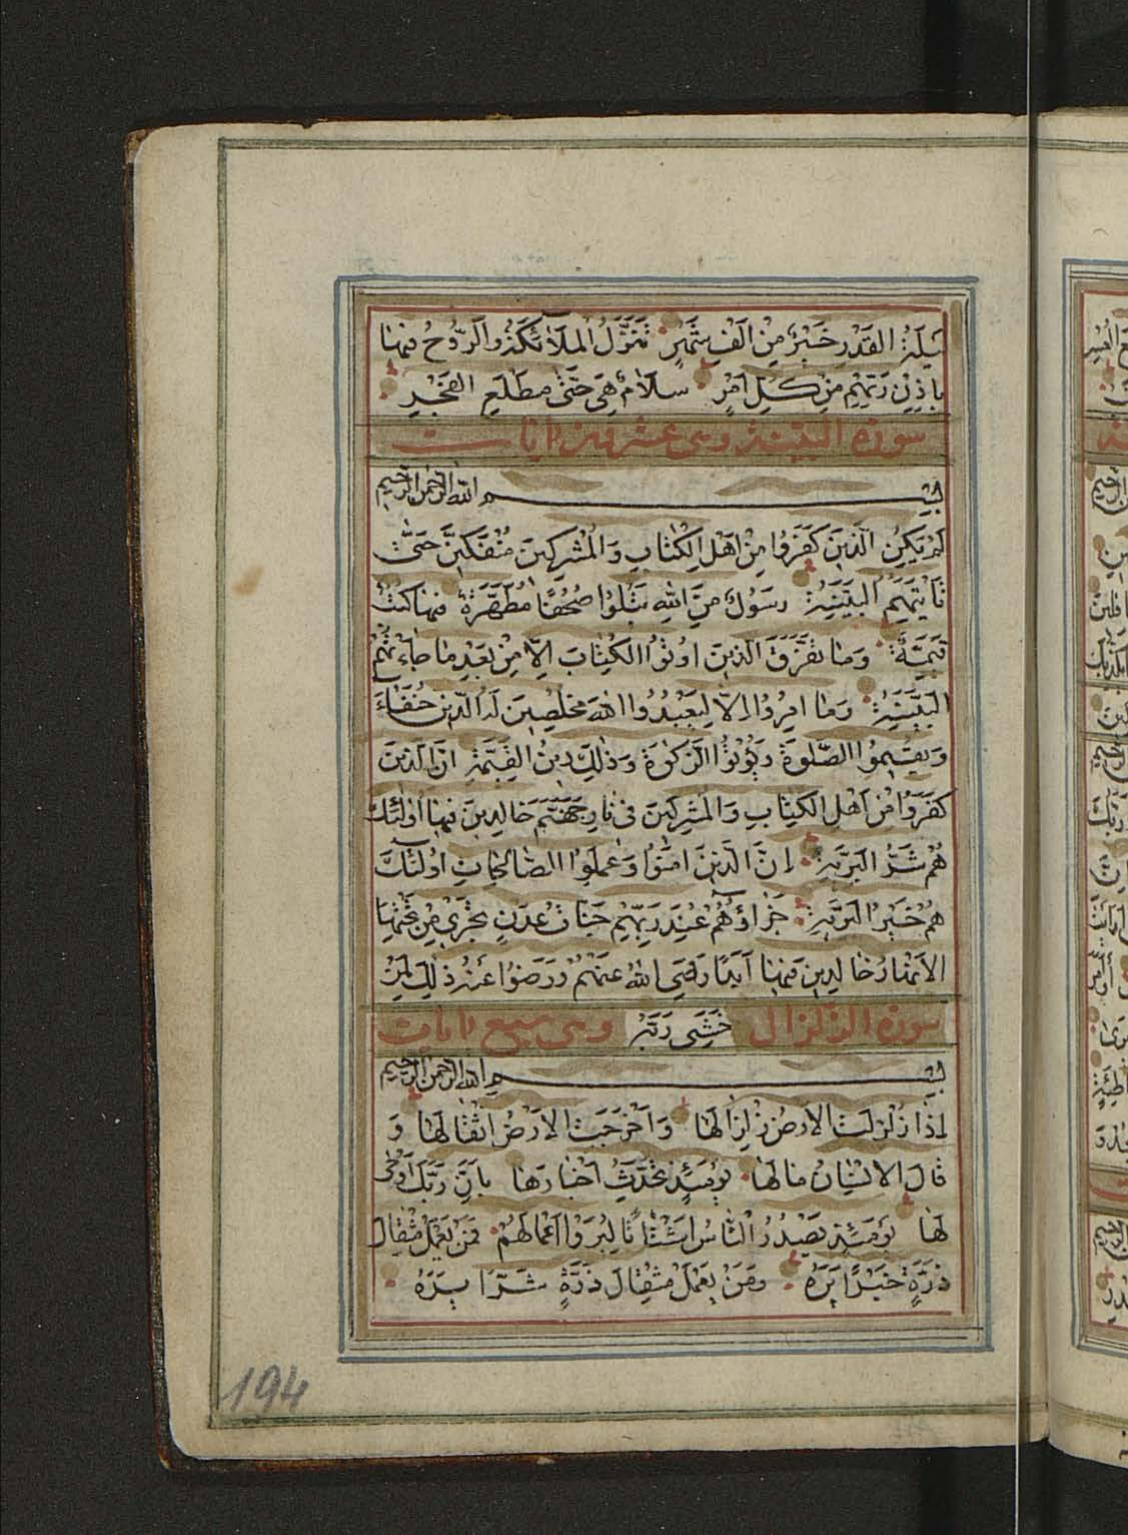 لَيْلَةُ القَدْرِ خَيْرٌ مِنْ اَلْفِ شَهْرٍ تَنَزَّلُ المَلَآئِكَةُ وَالرُّوْحُ فِيهَا
بِاِذْنِ رَبِّهِمْ مِنْ كُلِّ اَمْرٍ سَلَامٌ هِيَ حَتّٰى مَطْلَعِ الفَجْرِ
سورة البينة وهى عشر ايات
بسم الله الرحمن الرحيم
لَمْ يَكُنِ الَّذِينَ كَفَرُوا مِنْ اَهْلِ الْكِتَابِ وَالْمُشْرِكِينَ مُنْفَكِّينَ حَتّٰى
تَاْتِيَهُمُ الْبَيِّنَةُ رَسُولٌ مِنَ اللهِ يَتْلُوا صُحُفًا مُطَهَّرَةً فِيهَا كُتُبٌ
قَيِّمَةٌ وَمَا تَفَرَّقَ الَّذِينَ اُوتُوا الْكِتَابَ اِلَّا مِنْ بَعْدِ مَا جَاءَتْهُمُ
الْبَيِّنَةُ وَمَا اُمِرُوا اِلَّا لِيَعْبُدُوا اللهَ مُخْلِصِينَ لَهُ الدِّينَ حُنَفَاءَ
وَيُقِيمُوا الصَّلٰوةَ وَيُؤْتُوا الزَّكٰوةَ وَذٰلِكَ دِينُ الْقَيِّمَةِ اِنَّ الَّذِينَ
كَفَرُوا مِنْ اَهْلِ الْكِتَابِ وَالْمُشْرِكِينَ فِى نَارِ جَهَنَّمَ خَالِدِينَ فِيهَا اُولٰئِكَ
هُمْ شَرُّ الْبَرِيَّةِ اِنَّ الَّذِينَ اٰمَنُوا وَعَمِلُوا الصَّالِحَاتِ اُولٰئِكَ
هُمْ خَيْرُ الْبَرِيَّةِ جَزَاؤُهُمْ عِنْدَ رَبِّهِمْ جَنَّاتُ عَدْنٍ تَجْرِى مِنْ تَحْتِهَا
الْاَنْهَارُ خَالِدِينَ فِيهَا اَبَدًا رَضِيَ اللهُ عَنْهُمْ وَرَضُوا عَنْهُ ذٰلِكَ لِمَنْ
سورة الزلزال خَشِىَ رَبَّهُ وهى سبع ايات
بسم الله الرحمن الرحيم
اِذَا زُلْزِلَتِ الْاَرْضُ زِلْزَالَهَا وَاَخْرَجَتِ الْاَرْضُ اَثْقَالَهَا وَ
قَالَ الْاِنْسَانُ مَا لَهَا يَوْمَئِذٍ تُحَدِّثُ اَخْبَارَهَا بِاَنَّ رَبَّكَ اَوْحٰى
لَهَا يَوْمَئِذٍ يَصْدُرُ النَّاسُ اَشْتَاتًا لِيُرَوْا اَعْمَالَهُمْ فَمَنْ يَعْمَلْ مِثْقَالَ
ذَرَّةٍ خَيْرًا يَرَهُ وَمَنْ يَعْمَلْ مِثْقَالَ ذَرَّةٍ شَرًّا يَرَهُ
194